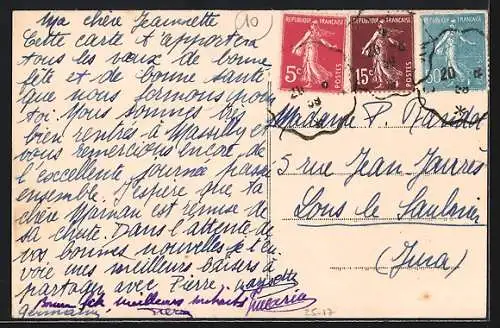 Ma chère Jeannette
Cette carte t'apportera
tous les vœux de bonne
fête et de bonne santé
que nous formons pour
toi. Nous sommes
bien rentrés à
vous remercions encore de
l'excellente journée passée
ensemble. J'espère que ta
chère Maman est remise de
sa chute. Dans l'attente de
vos bonnes nouvelles je t'en
voie mes meilleurs baisers à
partager avec Pierre.
Bonne fête meilleurs
Germaine
10
REPUBLIQUE FRANÇAISE
5c
POSTES
REPUBLIQUE FRANÇAISE
15c
POSTES
REPUBLIQUE FRANÇAISE
20
Madame P.
5 rue Jean Jaurès
Lons le Saulnier
(Jura)
25-17